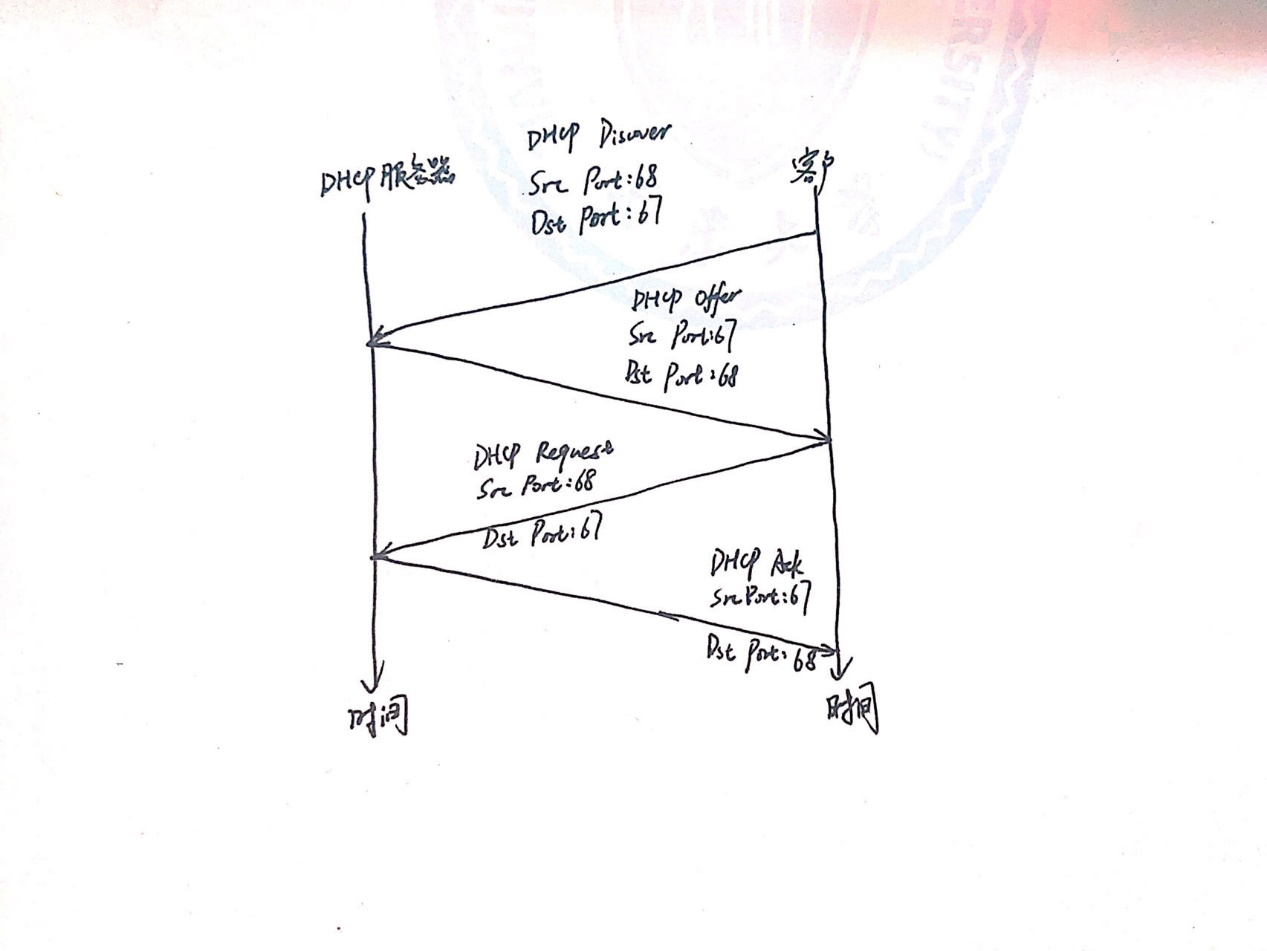 DHCP Discover
DHCP服务器
客户
Src Port:68
Dst Port:67
DHCP Offer
Src Port:67
Dst Port:68
DHCP Request
Src Port:68
Dst Port:67
DHCP Ack
Src Port:67
Dst Port:68
时间
时间